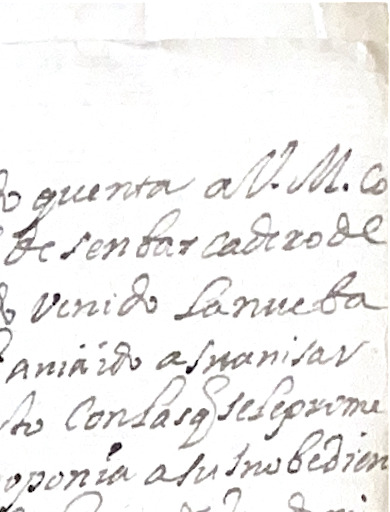 do quenta a V. M. Co
desenbarcadero del
venido la nueba
avia ido a
to con las q se le prome
oponia a su inobedien